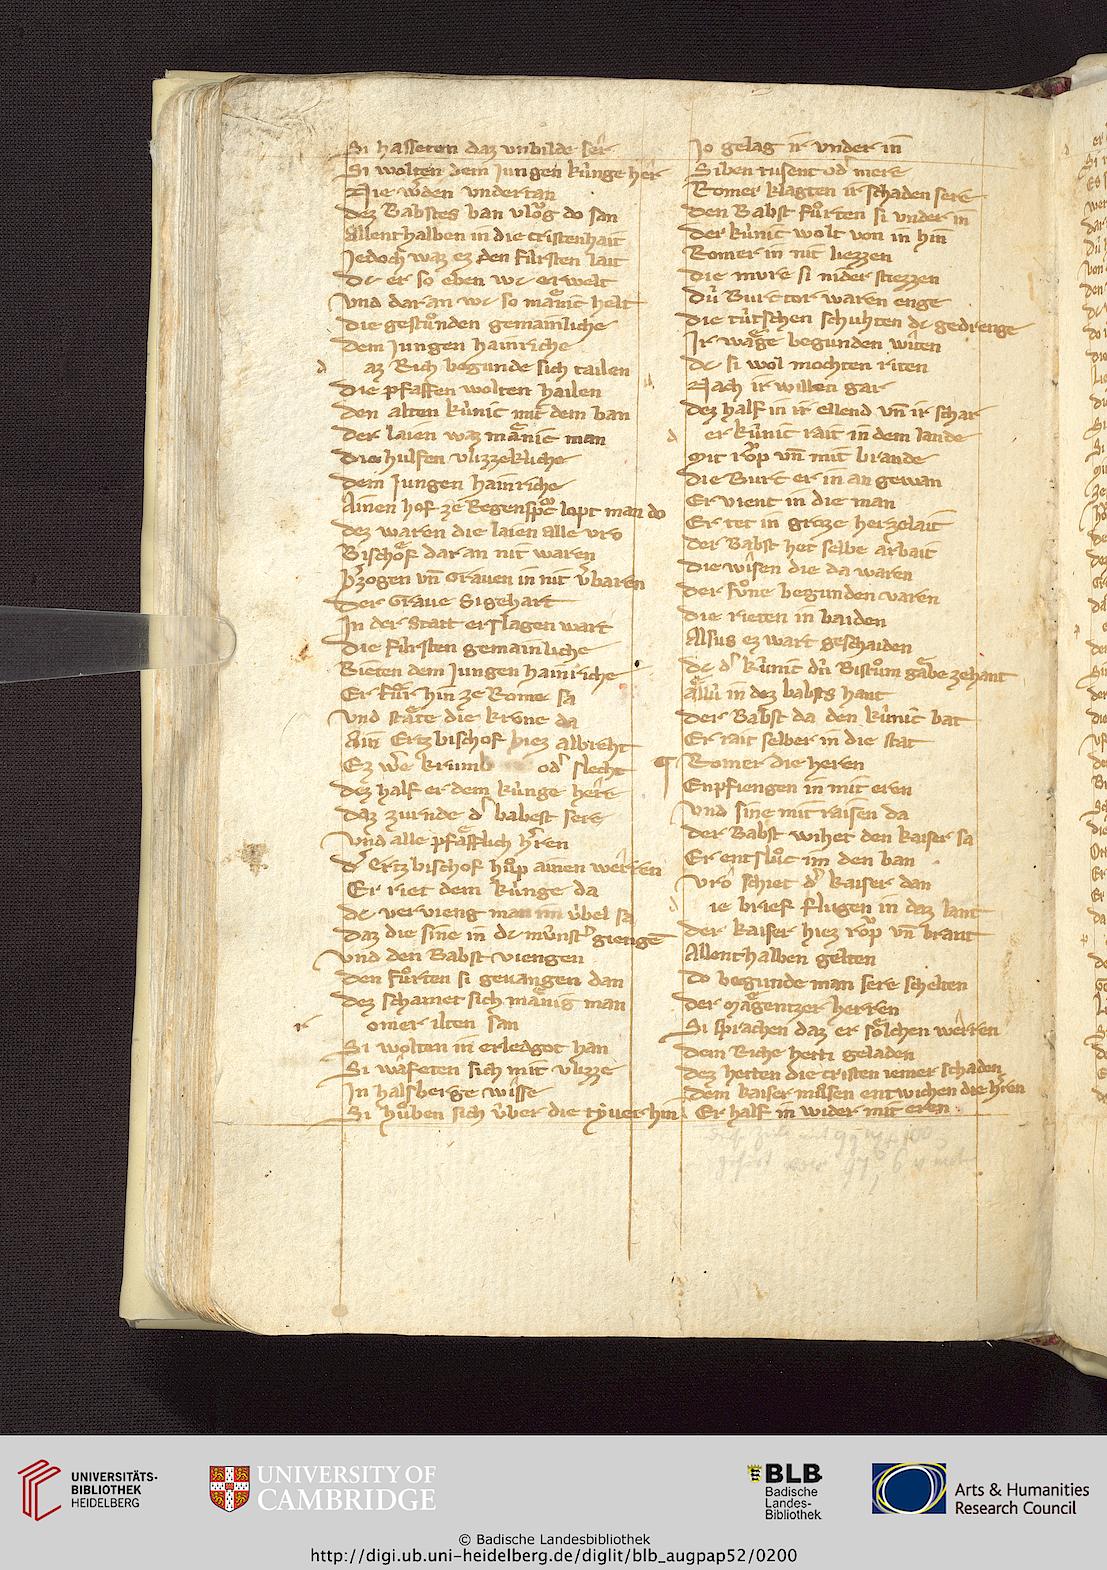 Si hasseten daz vnbilde ser
Si wolten dem Jungen kúnge her
Nie wden vndertan
dez Babstes ban vlog do san
Allenthalben in die cristenhait
Jedoch waz ez den fúrsten lait
dc er so eben wc erwelt
vnd daran wc so manic helt
die gestůnden gemainliche
dem Jungen hainriche
d az Rich begunde sich tailen
die pfaffen wolten hailen
den alten kúnic mit dem ban
der laien waz manic man
die hulfen vlizzekliche
dem Jungen hainriche
Ainen hof ze Regenspc lopt man do
dez waren die laien alle vro
Bischof daran nit waren
hzogen vn Grauen in nit vbaren
der Graue Sigehart
In der Statt erslagen wart
die fúrsten gemainliche
Rieten dem Jungen hainriche
Er fůr hin ze Rome sa
vnd state die krone da
Ain Ertzbischof hiez albreht
Ez we krumb od slecht
dez half er dem kúnge here
daz zurnde d babest sere
vnd alle pfafflich hren
d Ertzbischof hůp ainen werren
Er riet dem kúnge da
dc vervieng man im úbel sa
daz die sine in dc múnst giengē
vnd den Babst viengen
den fůrten si geuangen dan
dez schamet sich manig man
r omer ilten san
Si wolten in erledgot han
Si wafeten sich mit vlizze
In halsberge wisse
Si hůben sich úber die tyuer hin
Jo gelag ir vnder in
Siben tusent vd mere
Romer klagten ir schaden sere
den Babst fůrten si vnder in
der kúnic wolt von in hin
Romer in nit liezzen
die mure si nider stiezzen
dú Burctor waren enge
die tútschen schuhten dc gedrenge
Ir wage begunden witen
dc si wol mochten riten
Nach ir willen gar
dez half in ir ellend vn ir schar
d er kúnic rait in dem lande
mit rop vn mit brande
die Burc er in an gewan
Er vienc in die man
Er tet in groze herzelait
der Babst het selbe arbait
die wisen die da waren
der sůne begunden varen
die rieten in baiden
Alsus ez wart geschaiden
dc d kúnic dú Bistům gabe zehant
Allú in dez babsts hant
der Babst da den kúnic bat
Er rait selber in die stat
Romer die heren
Enpfiengen in mit eren
vnd sine mit raisen da
der Babst wihet den kaiser sa
Er entslůc im den ban
vro schiet d kaiser dan
d ie brief flugen in daz lant
der kaiser hiez rop vn brant
Allenthalben gelten
do begunde man sere schelten
der Magentzer herren
Si sprachen daz er solchen werren
dem Riche hetti geladen
dez hetten die cristen iemer schaden
dem kaiser můsen entwichen die hren
Er half in wider mit eren
UNIVERSITÄTS-
BIBLIOTHEK
HEIDELBERG
UNIVERSITY OF
CAMBRIDGE
BLB
Badische
Landes-
Bibliothek
Arts & Humanities
Research Council
© Badische Landesbibliothek
http://digi.ub.uni-heidelberg.de/diglit/blb_augpap52/0200